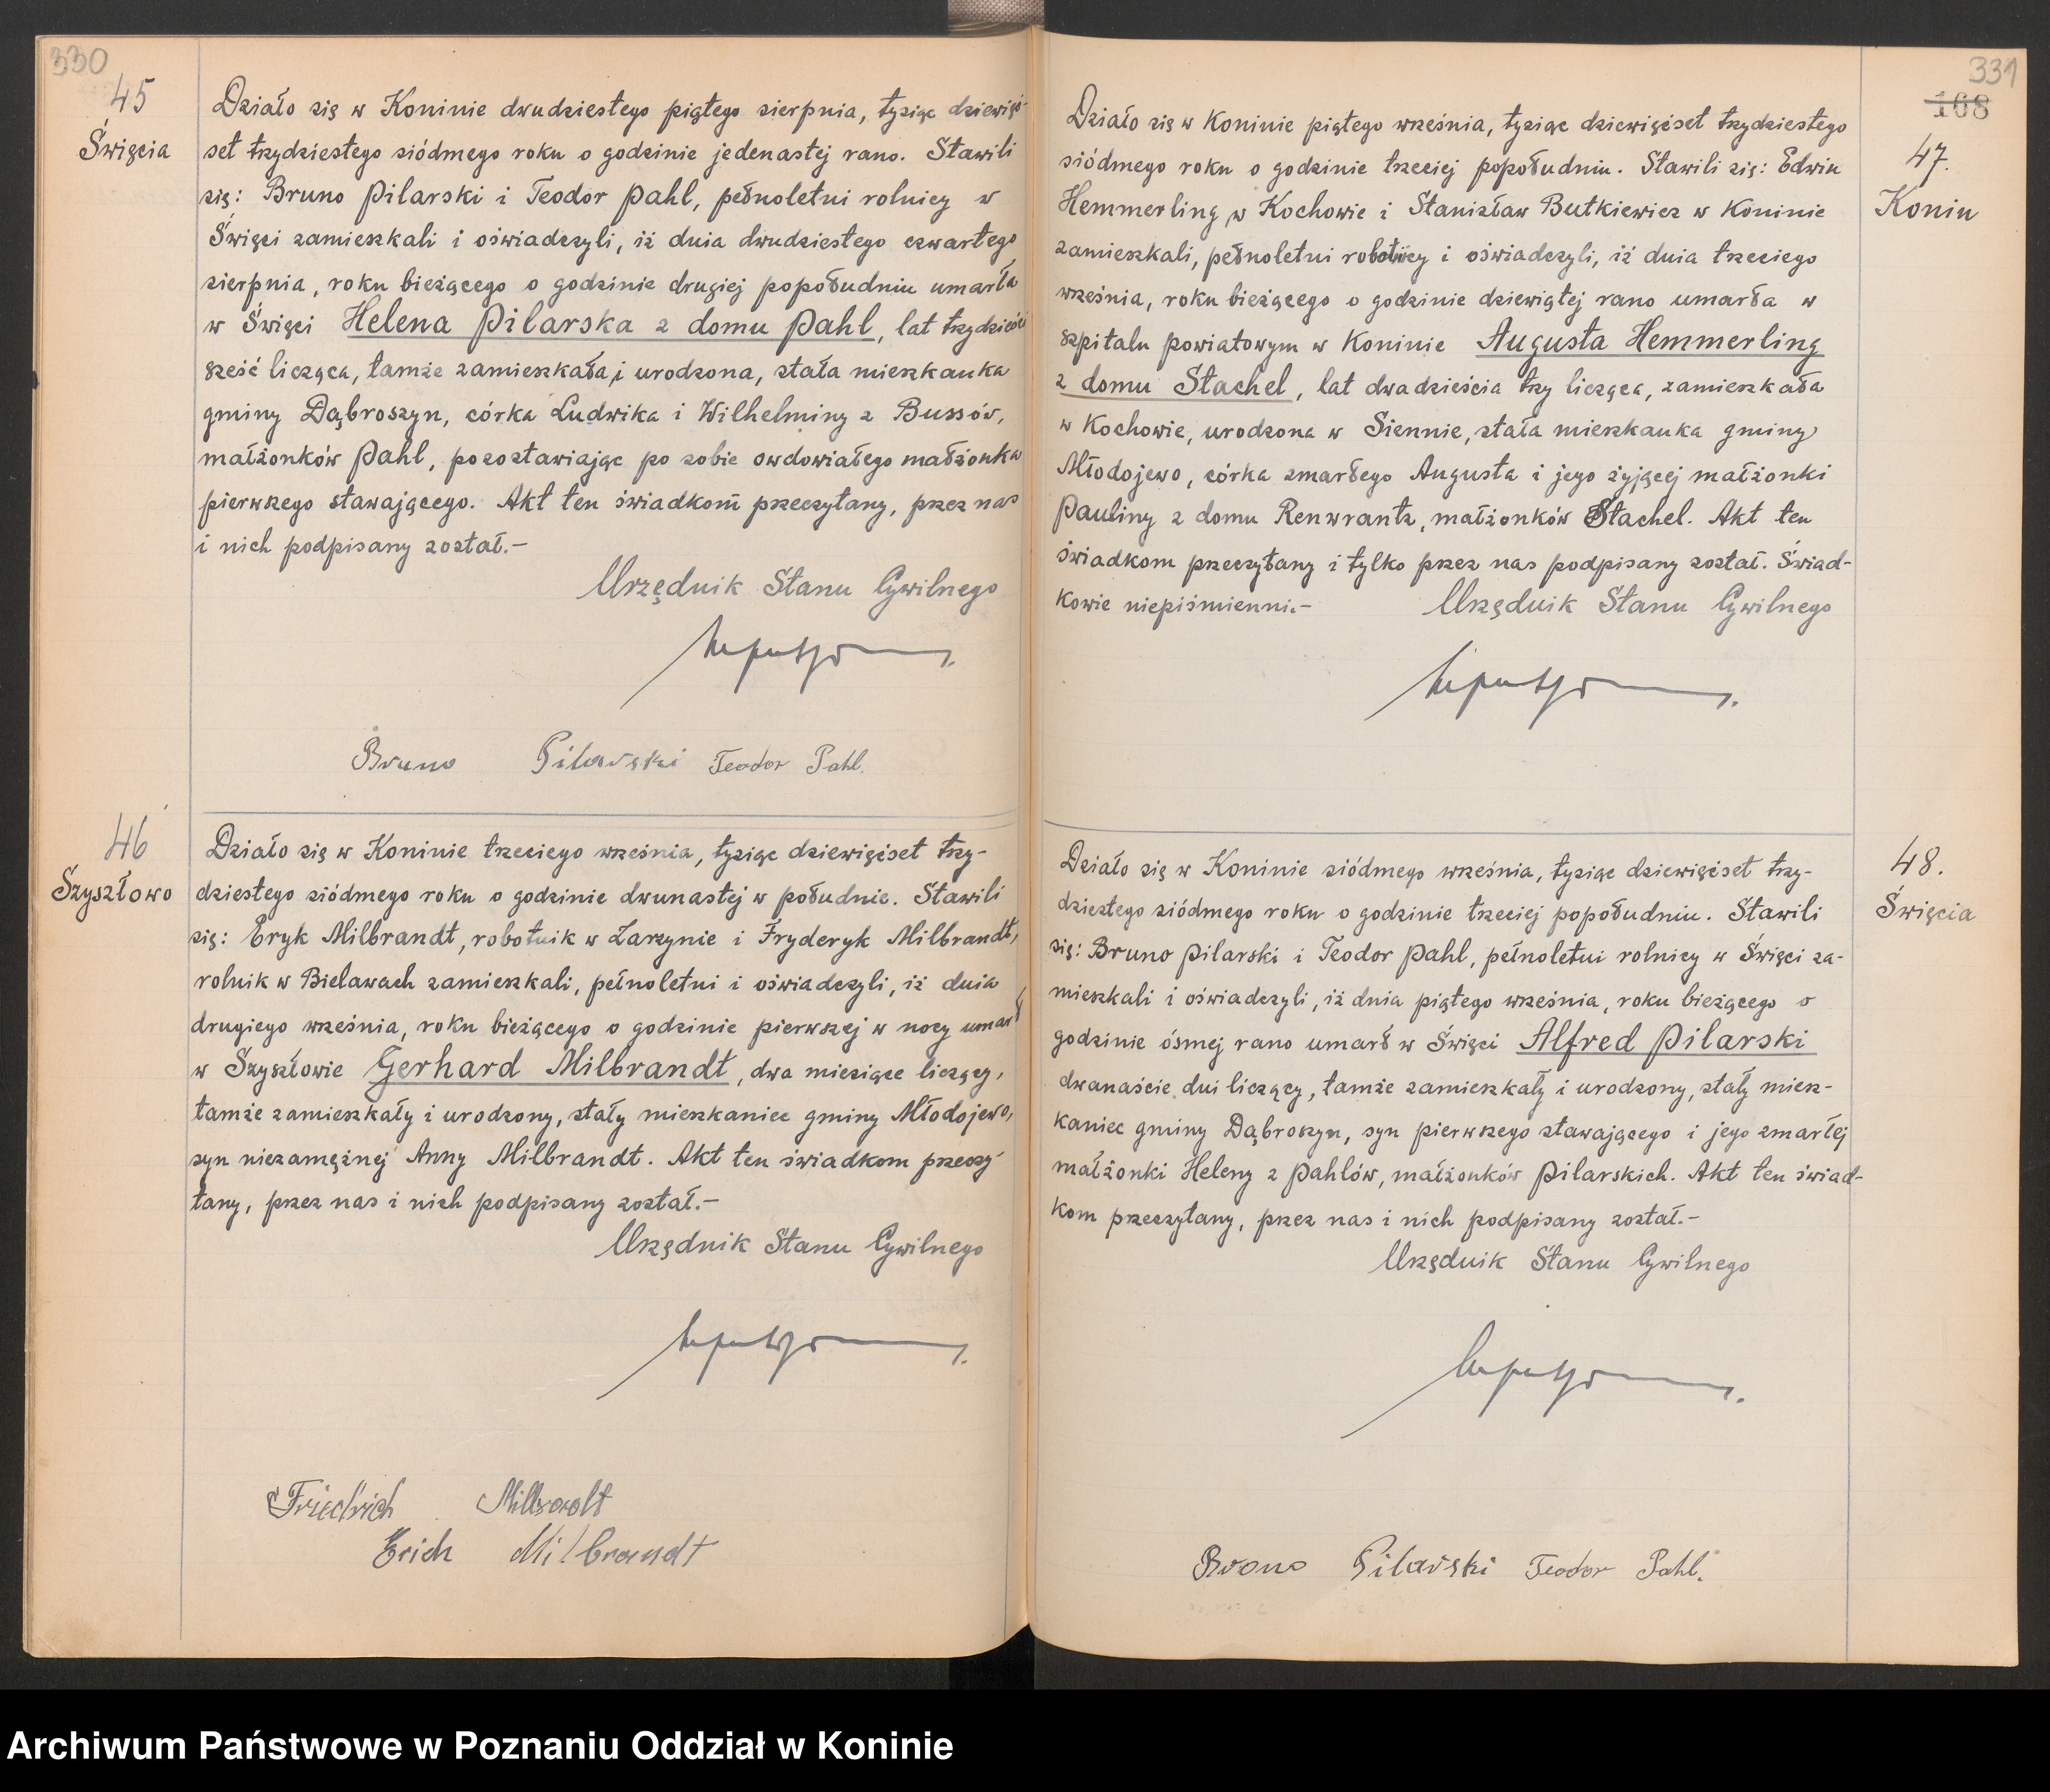 330
45
Święcia
Działo się w Koninie dwudziestego piątego sierpnia, tysiąc dziewięć-
set trzydziestego siódmego roku o godzinie jedenastej rano. Stawili
się: Bruno Pilarski i Teodor Pahl, pełnoletni rolnicy w
Święci zamieszkali i oświadczyli, iż dnia dwudziestego czwartego
sierpnia, roku bieżącego o godzinie drugiej popołudniu umarła
w Święci Helena Pilarska z domu Pahl, lat trzydzieści
sześć licząca, tamże zamieszkała i urodzona, stała mieszkanka
gminy Dąbroszyn, córka Ludwika i Wilhelminy z Bussów,
małżonków Pahl, pozostawiając po sobie owdowiałego małżonka
pierwszego stawającego. Akt ten świadkom przeczytany, przez nas
i nich podpisany został.-
Urzędnik Stanu Cywilnego
Bruno Pilarski Teodor Pahl.
46
Szyszłowo
Działo się w Koninie trzeciego września, tysiąc dziewięćset trzy-
dziestego siódmego roku o godzinie dwunastej w południe. Stawili
się: Eryk Milbrandt, robotnik w Zarzynie i Fryderyk Milbrandt,
rolnik w Bielawach zamieszkali, pełnoletni i oświadczyli, iż dnia
drugiego września, roku bieżącego o godzinie pierwszej w nocy umarł
w Szyszłowie Gerhard Milbrandt, dwa miesiące liczący,
tamże zamieszkały i urodzony, stały mieszkaniec gminy Młodojewo,
syn niezamężnej Anny Milbrandt. Akt ten świadkom przeczy-
tany, przez nas i nich podpisany został.-
Urzędnik Stanu Cywilnego
Friedrich Milbrandt
Erich Milbrandt
331
168
47.
Konin
Działo się w Koninie piątego września, tysiąc dziewięćset trzydziestego
siódmego roku o godzinie trzeciej popołudniu. Stawili się: Edwin
Hemmerling w Kochowie i Stanisław Butkiewicz w Koninie
zamieszkali, pełnoletni robotnicy i oświadczyli, iż dnia trzeciego
września, roku bieżącego o godzinie dziewiątej rano umarła w
szpitalu powiatowym w Koninie Augusta Hemmerling
z domu Stachel, lat dwadzieścia trzy licząca, zamieszkała
w Kochowie, urodzona w Siennie, stała mieszkanka gminy
Młodojewo, córka zmarłego Augusta i jego żyjącej małżonki
Pauliny z domu Renwrantz, małżonków Stachel. Akt ten
świadkom przeczytany i tylko przez nas podpisany został. Świad-
kowie niepiśmienni.-
Urzędnik Stanu Cywilnego
48.
Święcia
Działo się w Koninie siódmego września, tysiąc dziewięćset trzy-
dziestego siódmego roku o godzinie trzeciej popołudniu. Stawili
się: Bruno Pilarski i Teodor Pahl, pełnoletni rolnicy w Święci za-
mieszkali i oświadczyli, iż dnia piątego września, roku bieżącego o
godzinie ósmej rano umarł w Święci Alfred Pilarski
dwanaście dni liczący, tamże zamieszkały i urodzony, stały miesz-
kaniec gminy Dąbroszyn, syn pierwszego stawającego i jego zmarłej
małżonki Heleny z Pahlów, małżonków Pilarskich. Akt ten świad-
kom przeczytany, przez nas i nich podpisany został.-
Urzędnik Stanu Cywilnego
Bruno Pilarski Teodor Pahl.
Archiwum Państwowe w Poznaniu Oddział w Koninie